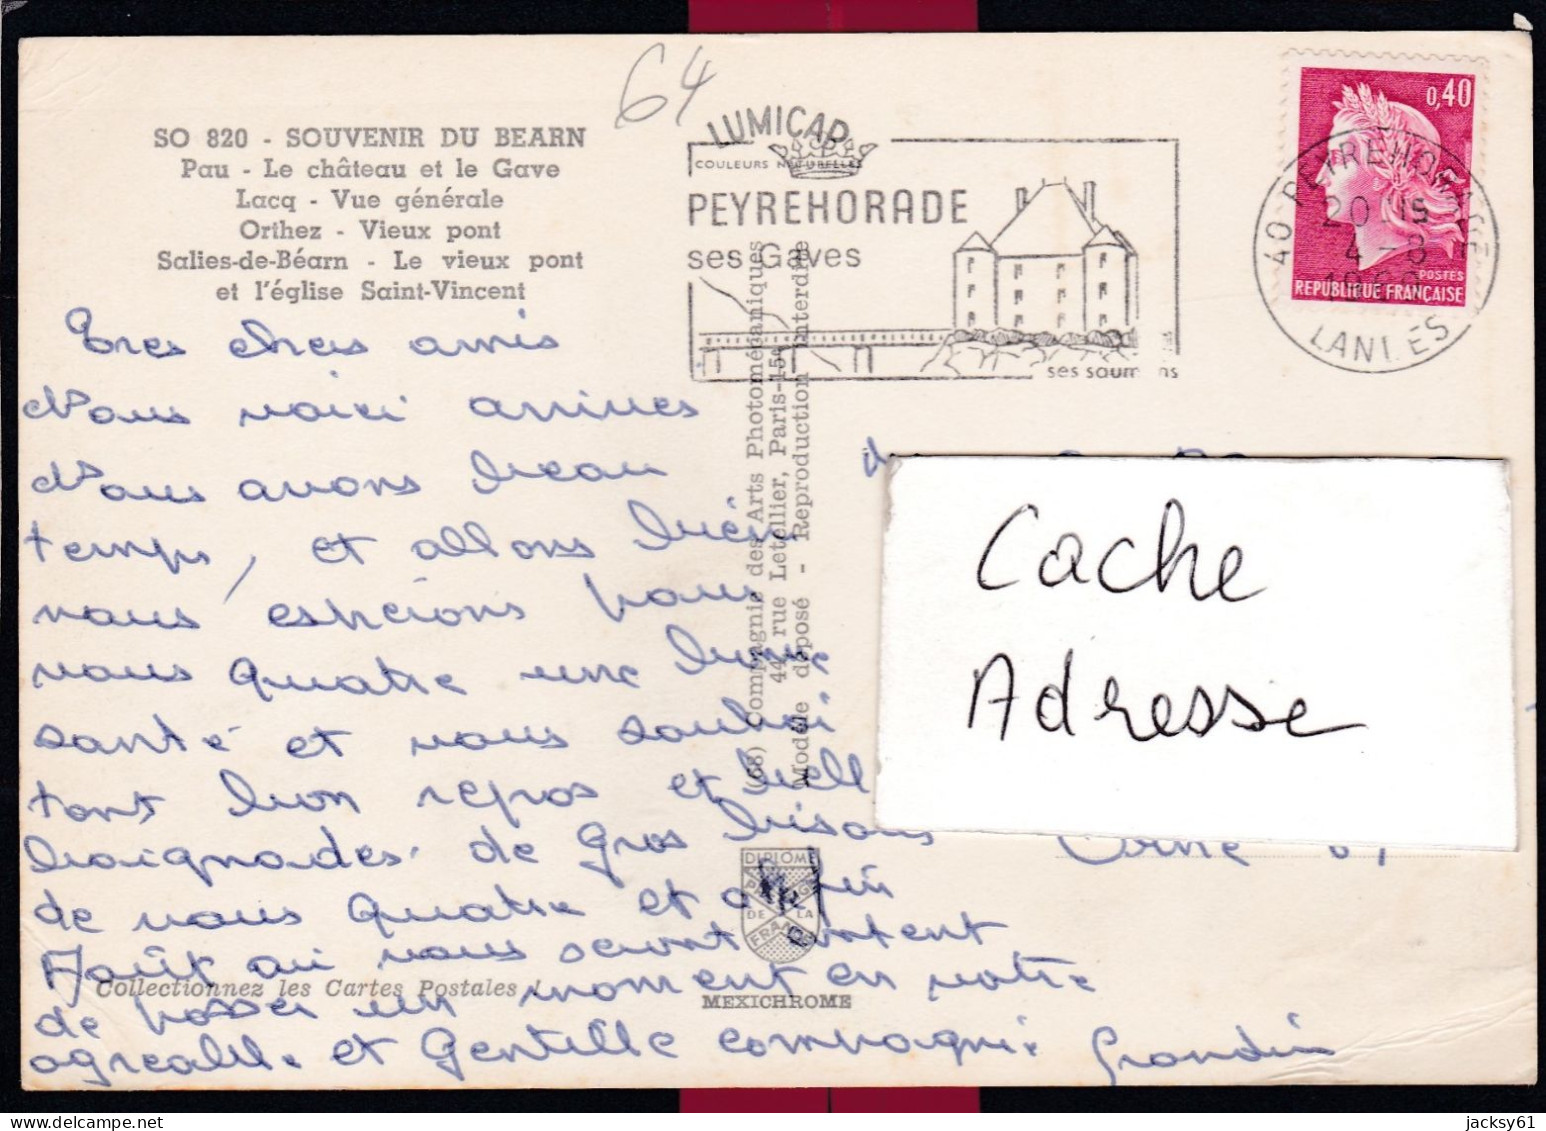 64
SO 820 - SOUVENIR DU BEARN
Pau - Le château et le Gave
Lacq - Vue générale
Orthez - Vieux pont
Salies-de-Béarn - Le vieux pont
et l'église Saint-Vincent
LUMICAP
COULEURS NATURELLES
PEYREHORADE
ses Gaves
ses saumons
0,40
POSTES
REPUBLIQUE FRANÇAISE
40 PEYREHORADE
20 H15
4 - 8
LANDES
Tres chers amis
Nous voici arrives
Nous avons beau
temps, et allons bien
nous esperions pour
vous quatre une bonne
santé et vous souhai
tons bon repos et bell
baignades. de gros bisous
de nous quatre et a fin
Août ou nous seront content
de passer un moment en votre
agreable et gentille compagnie. Grondin
(68) Compagnie des Arts Photomécaniques
44, rue Letellier, Paris-15e
Modèle déposé - Reproduction interdite
Cache
Adresse
61
DIPLOME
DE LA
FRANCE
Collectionnez les Cartes Postales !
MEXICHROME
jacksy61